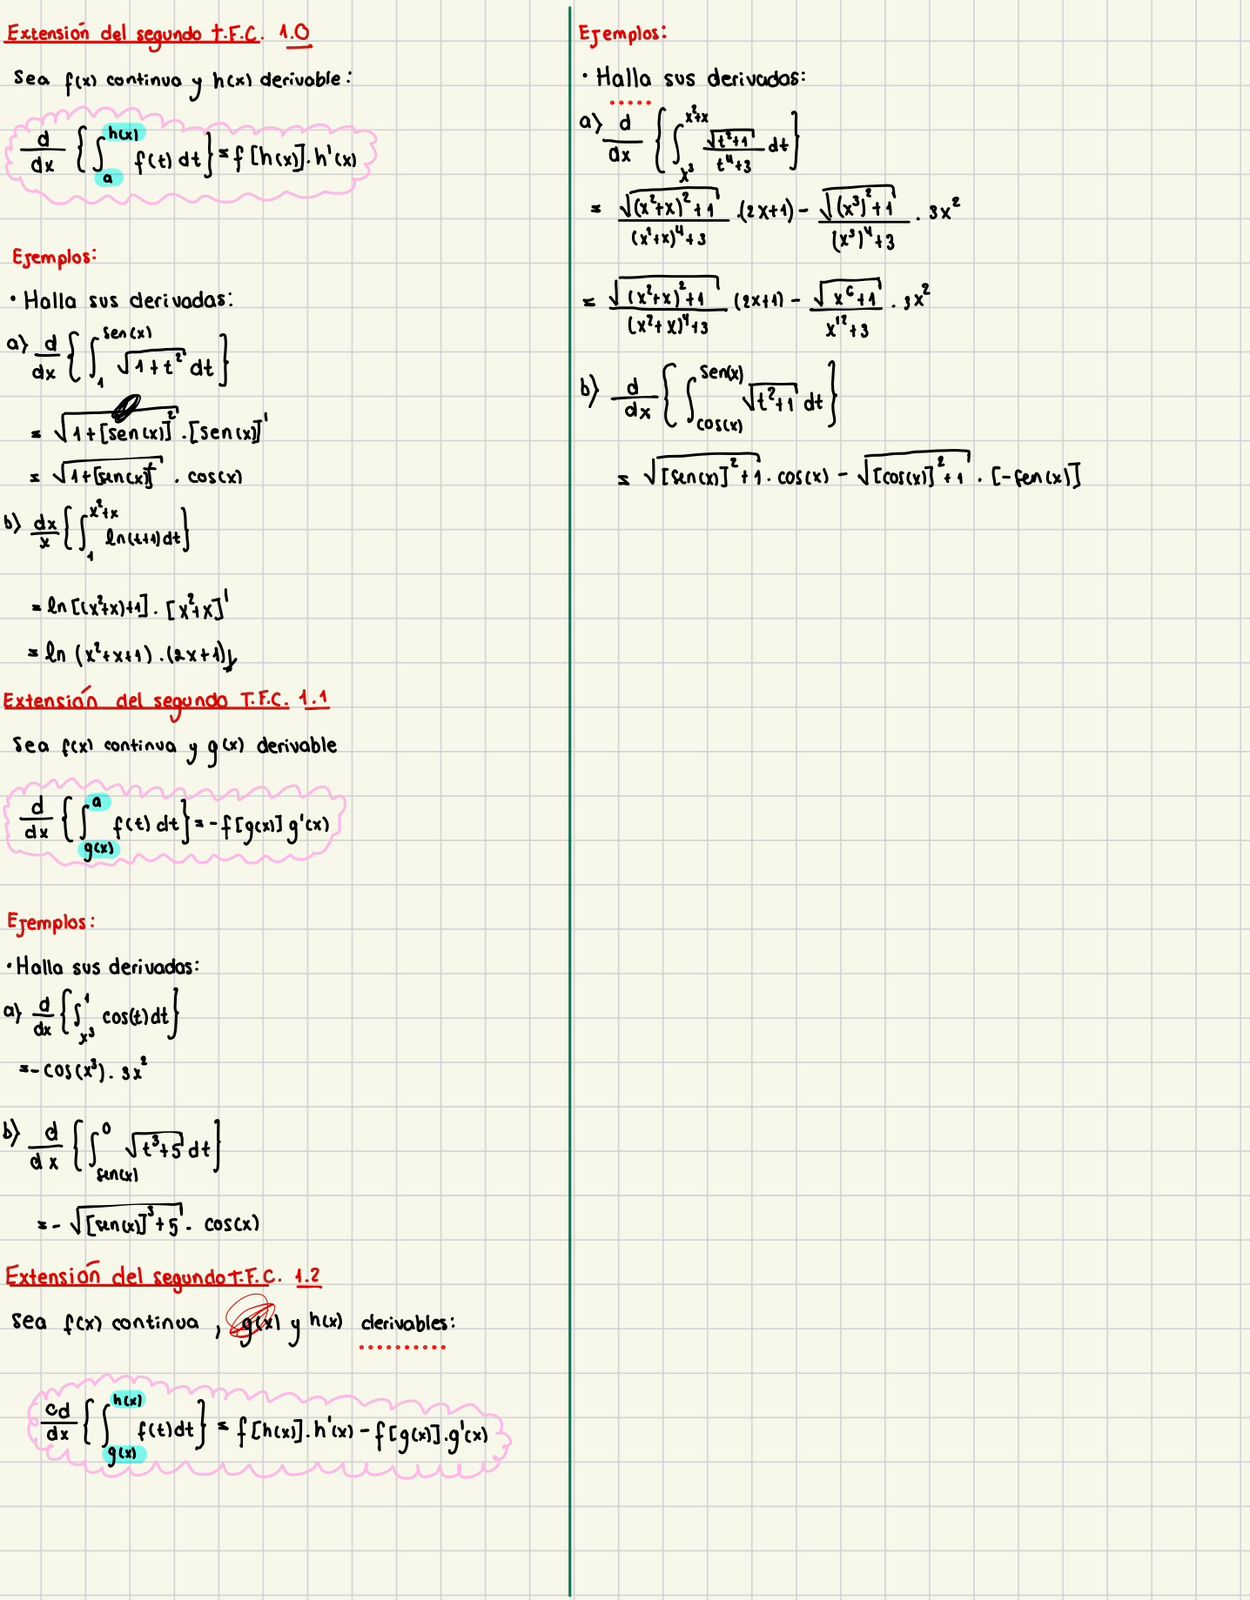 Extensión del segundo T.F.C. 1.0
Sea f(x) continua y h(x) derivable:
d/dx { ∫_a^{h(x)} f(t) dt } = f[h(x)] . h'(x)
Ejemplos:
• Halla sus derivadas:
a) d/dx { ∫_1^{sen(x)} √(1+t²) dt }
= √(1+[sen(x)]²) . [sen(x)]'
= √(1+[sen(x)]²) . cos(x)
b) dx/x { ∫_1^{x²+x} ln(t+1) dt }
= ln[(x²+x)+1] . [x²+x]'
= ln (x²+x+1) . (2x+1)
Extensión del segundo T.F.C. 1.1
Sea f(x) continua y g(x) derivable
d/dx { ∫_{g(x)}^a f(t) dt } = - f[g(x)] g'(x)
Ejemplos:
• Halla sus derivadas:
a) d/dx { ∫_{x³}^1 cos(t) dt }
= - cos(x³) . 3x²
b) d/dx { ∫_{sen(x)}^0 √(t³+5) dt }
= - √([sen(x)]³+5) . cos(x)
Extensión del segundo T.F.C. 1.2
Sea f(x) continua , g(x) y h(x) derivables:
cd/dx { ∫_{g(x)}^{h(x)} f(t) dt } = f[h(x)] . h'(x) - f[g(x)] . g'(x)
Ejemplos:
• Halla sus derivadas:
a) d/dx { ∫_{x³}^{x²+x} √(t²+1)/(t⁴+3) dt }
= √((x²+x)²+1)/((x²+x)⁴+3) . (2x+1) - √((x³)²+1)/((x³)⁴+3) . 3x²
= √((x²+x)²+1)/((x²+x)⁴+3) (2x+1) - √(x⁶+1)/(x¹²+3) . 3x²
b) d/dx { ∫_{cos(x)}^{sen(x)} √(t²+1) dt }
= √([sen(x)]²+1) . cos(x) - √([cos(x)]²+1) . [-sen(x)]